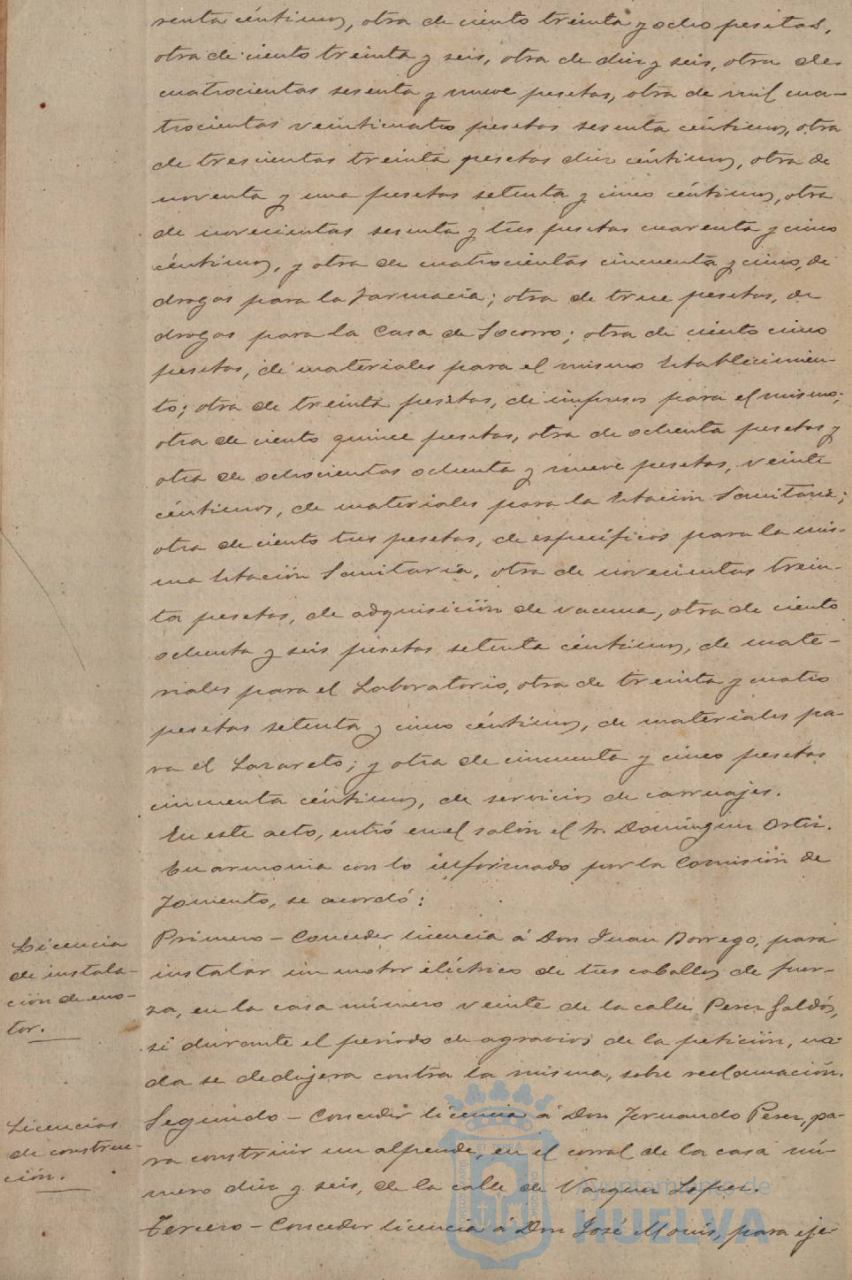 renta céntimos, otra de ciento treinta y ocho pesetas,
otra de ciento treinta y seis, otra de diez y seis, otra de
cuatrocientas sesenta y nueve pesetas, otra de mil cua-
trocientas veinticuatro pesetas sesenta céntimos, otra
de trescientas treinta pesetas diez céntimos, otra de
noventa y una pesetas setenta y cinco céntimos, otra
de novecientas sesenta y tres pesetas cuarenta y cinco
céntimos, y otra de cuatrocientas cincuenta y cinco, de
drogas para la Farmacia; otra de trece pesetas, de
drogas para la Casa de Socorro; otra de ciento cinco
pesetas, de materiales para el mismo Establecimien-
to; otra de treinta pesetas, de impresos para el mismo;
otra de ciento quince pesetas, otra de ochenta pesetas y
otra de ochocientas ochenta y nueve pesetas, veinte
céntimos, de materiales para la Estación Sanitaria;
otra de ciento tres pesetas, de específicos para la mis-
ma Estación Sanitaria, otra de novecientas trein-
ta pesetas, de adquisición de vacuna, otra de ciento
ochenta y seis pesetas setenta céntimos, de mate-
riales para el Laboratorio, otra de treinta y cuatro
pesetas setenta y cinco céntimos, de materiales pa-
ra el Lazareto; y otra de cincuenta y cinco pesetas
cincuenta céntimos, de servicios de carruajes.
En este acto, entró en el salón el Sr. Dominguez Ortiz.
En armonia con lo informado por la Comisión de
Fomento, se acordó:
Licencia
de instala-
ción de mo-
tor.
Primero - Conceder licencia á Don Juan Borrego, para
instalar un motor eléctrico de tres caballos de fuer-
za, en la casa número veinte de la calle Perez Galdós,
si durante el período de agravios de la petición, na-
da se dedujera contra la misma, sobre reclamación.
Licencias
de construc-
ción.
Segundo - Conceder licencia á Don Fernando Perez, pa-
ra construir un alpende, en el corral de la casa nú-
mero diez y seis, de la calle de Vazquez Lopez.
Tercero - Conceder licencia á Don José Monís, para eje-
Ayuntamiento de
HUELVA